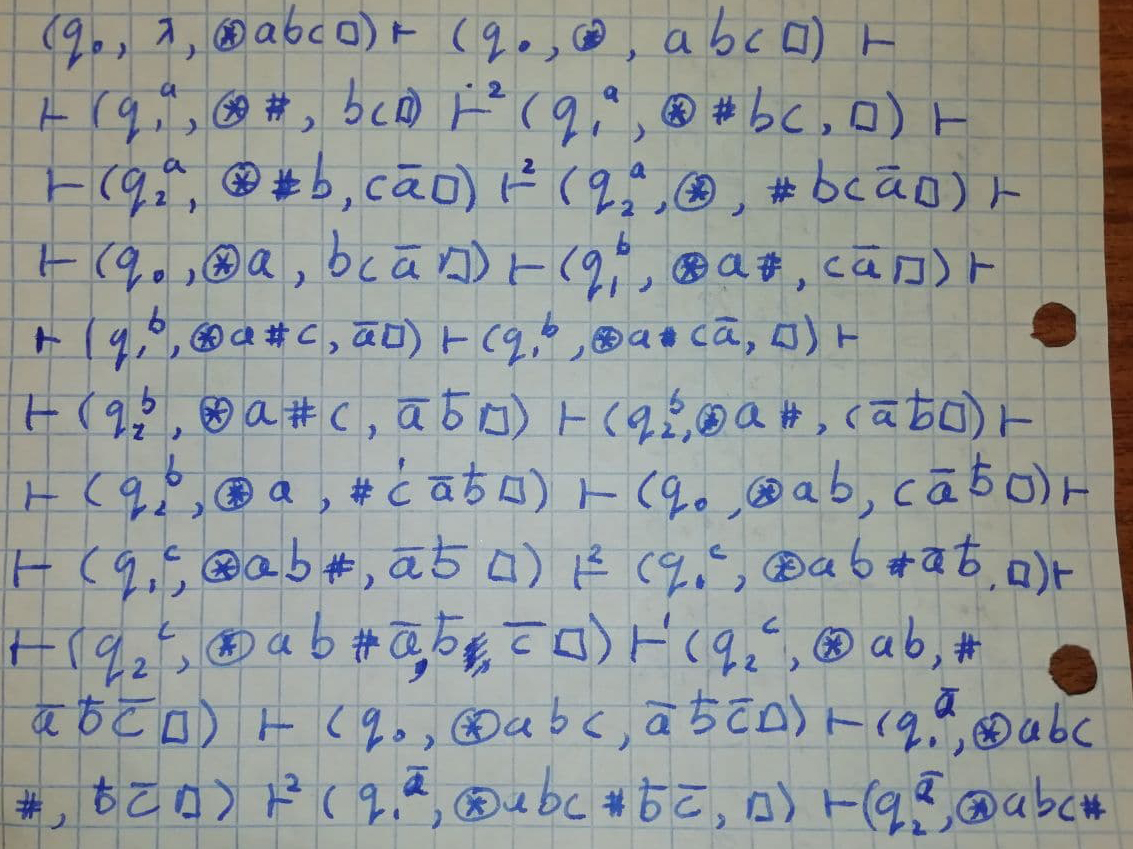 (q₀, λ, ⊛abc□)⊢ (q₀, ⊛, abc□) ⊢
⊢ (q₁ᵃ, ⊛#, bc□) ⊢² (q₁ᵃ, ⊛#bc, □) ⊢
⊢(q₂ᵃ, ⊛#b, cā□) ⊢² (q₂ᵃ, ⊛, #bcā□) ⊢
⊢ (q₀, ⊛a, bcā□) ⊢ (q₁ᵇ, ⊛a#, cā□) ⊢
⊢ (q₁ᵇ, ⊛a#c, ā□) ⊢ (q₁ᵇ, ⊛a#cā, □) ⊢
⊢ (q₂ᵇ, ⊛a#c, āb̄□) ⊢ (q₂ᵇ, ⊛a#, cāb̄□) ⊢
⊢ (q₂ᵇ, ⊛a, #cāb̄□) ⊢ (q₀, ⊛ab, cāb̄□) ⊢
⊢ (q₁ᶜ, ⊛ab#, āb̄□) ⊢² (q₁ᶜ, ⊛ab#āb̄, □) ⊢
⊢ (q₂ᶜ, ⊛ab#ā,b̄ c̄□) ⊢ (q₂ᶜ, ⊛ab, #
āb̄c̄□) ⊢ (q₀, ⊛abc, āb̄c̄□) ⊢ (q₁^ā, ⊛abc
#, b̄c̄□) ⊢² (q₁^ā, ⊛abc#b̄c̄, □) ⊢ (q₂^ā, ⊛abc#